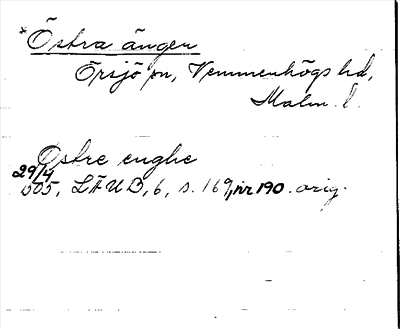 *Östra ängen
Örsjö sn, Vemmenhögs hd,
Malm. l.
Östre enghe
29/4
1505, LÄUB, 6, s. 169, nr 190. orig.